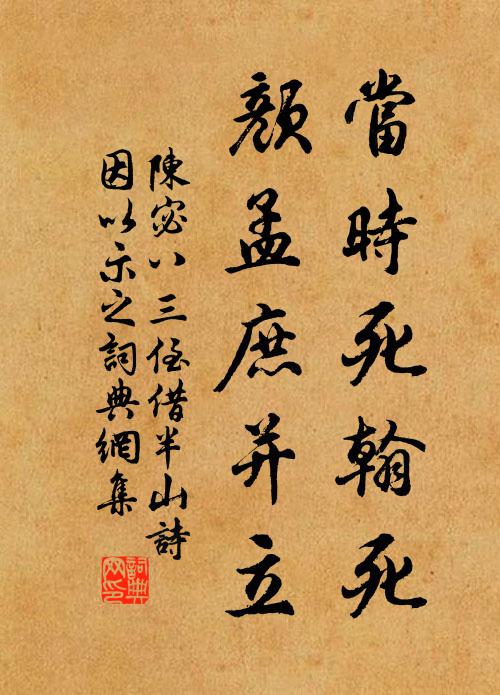 當時死翰死
顏孟庶并立
陳宓八三侄借半山詩
因以示之詞典網集
詞典网印